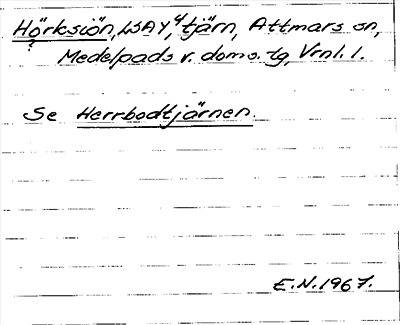 Hörksiön, LSAY⁴, tjärn, Attmars sn,
? Medelpads v. doms.-tg, Vrnl. 1.
Se Herrbodtjärnen.
E.N. 1967.